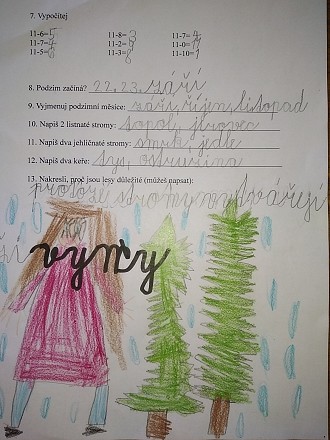 7. Vypočítej
11-6=5 11-8=3 11-7=4
11-7=4 11-2=9 11-0=11
11-5=6 11-3=8 11-10=1
8. Podzim začíná? 22, 23. září
9. Vyjmenuj podzimní měsíce: září, říjen, listopad
10. Napiš 2 listnaté stromy: topol, jírovec
11. Napiš dva jehličnaté stromy: smrk, jedle
12. Napiš dva keře: tys, ostružina
13. Nakresli, proč jsou lesy důležité (můžeš napsat):
protože stromy vytvářejí